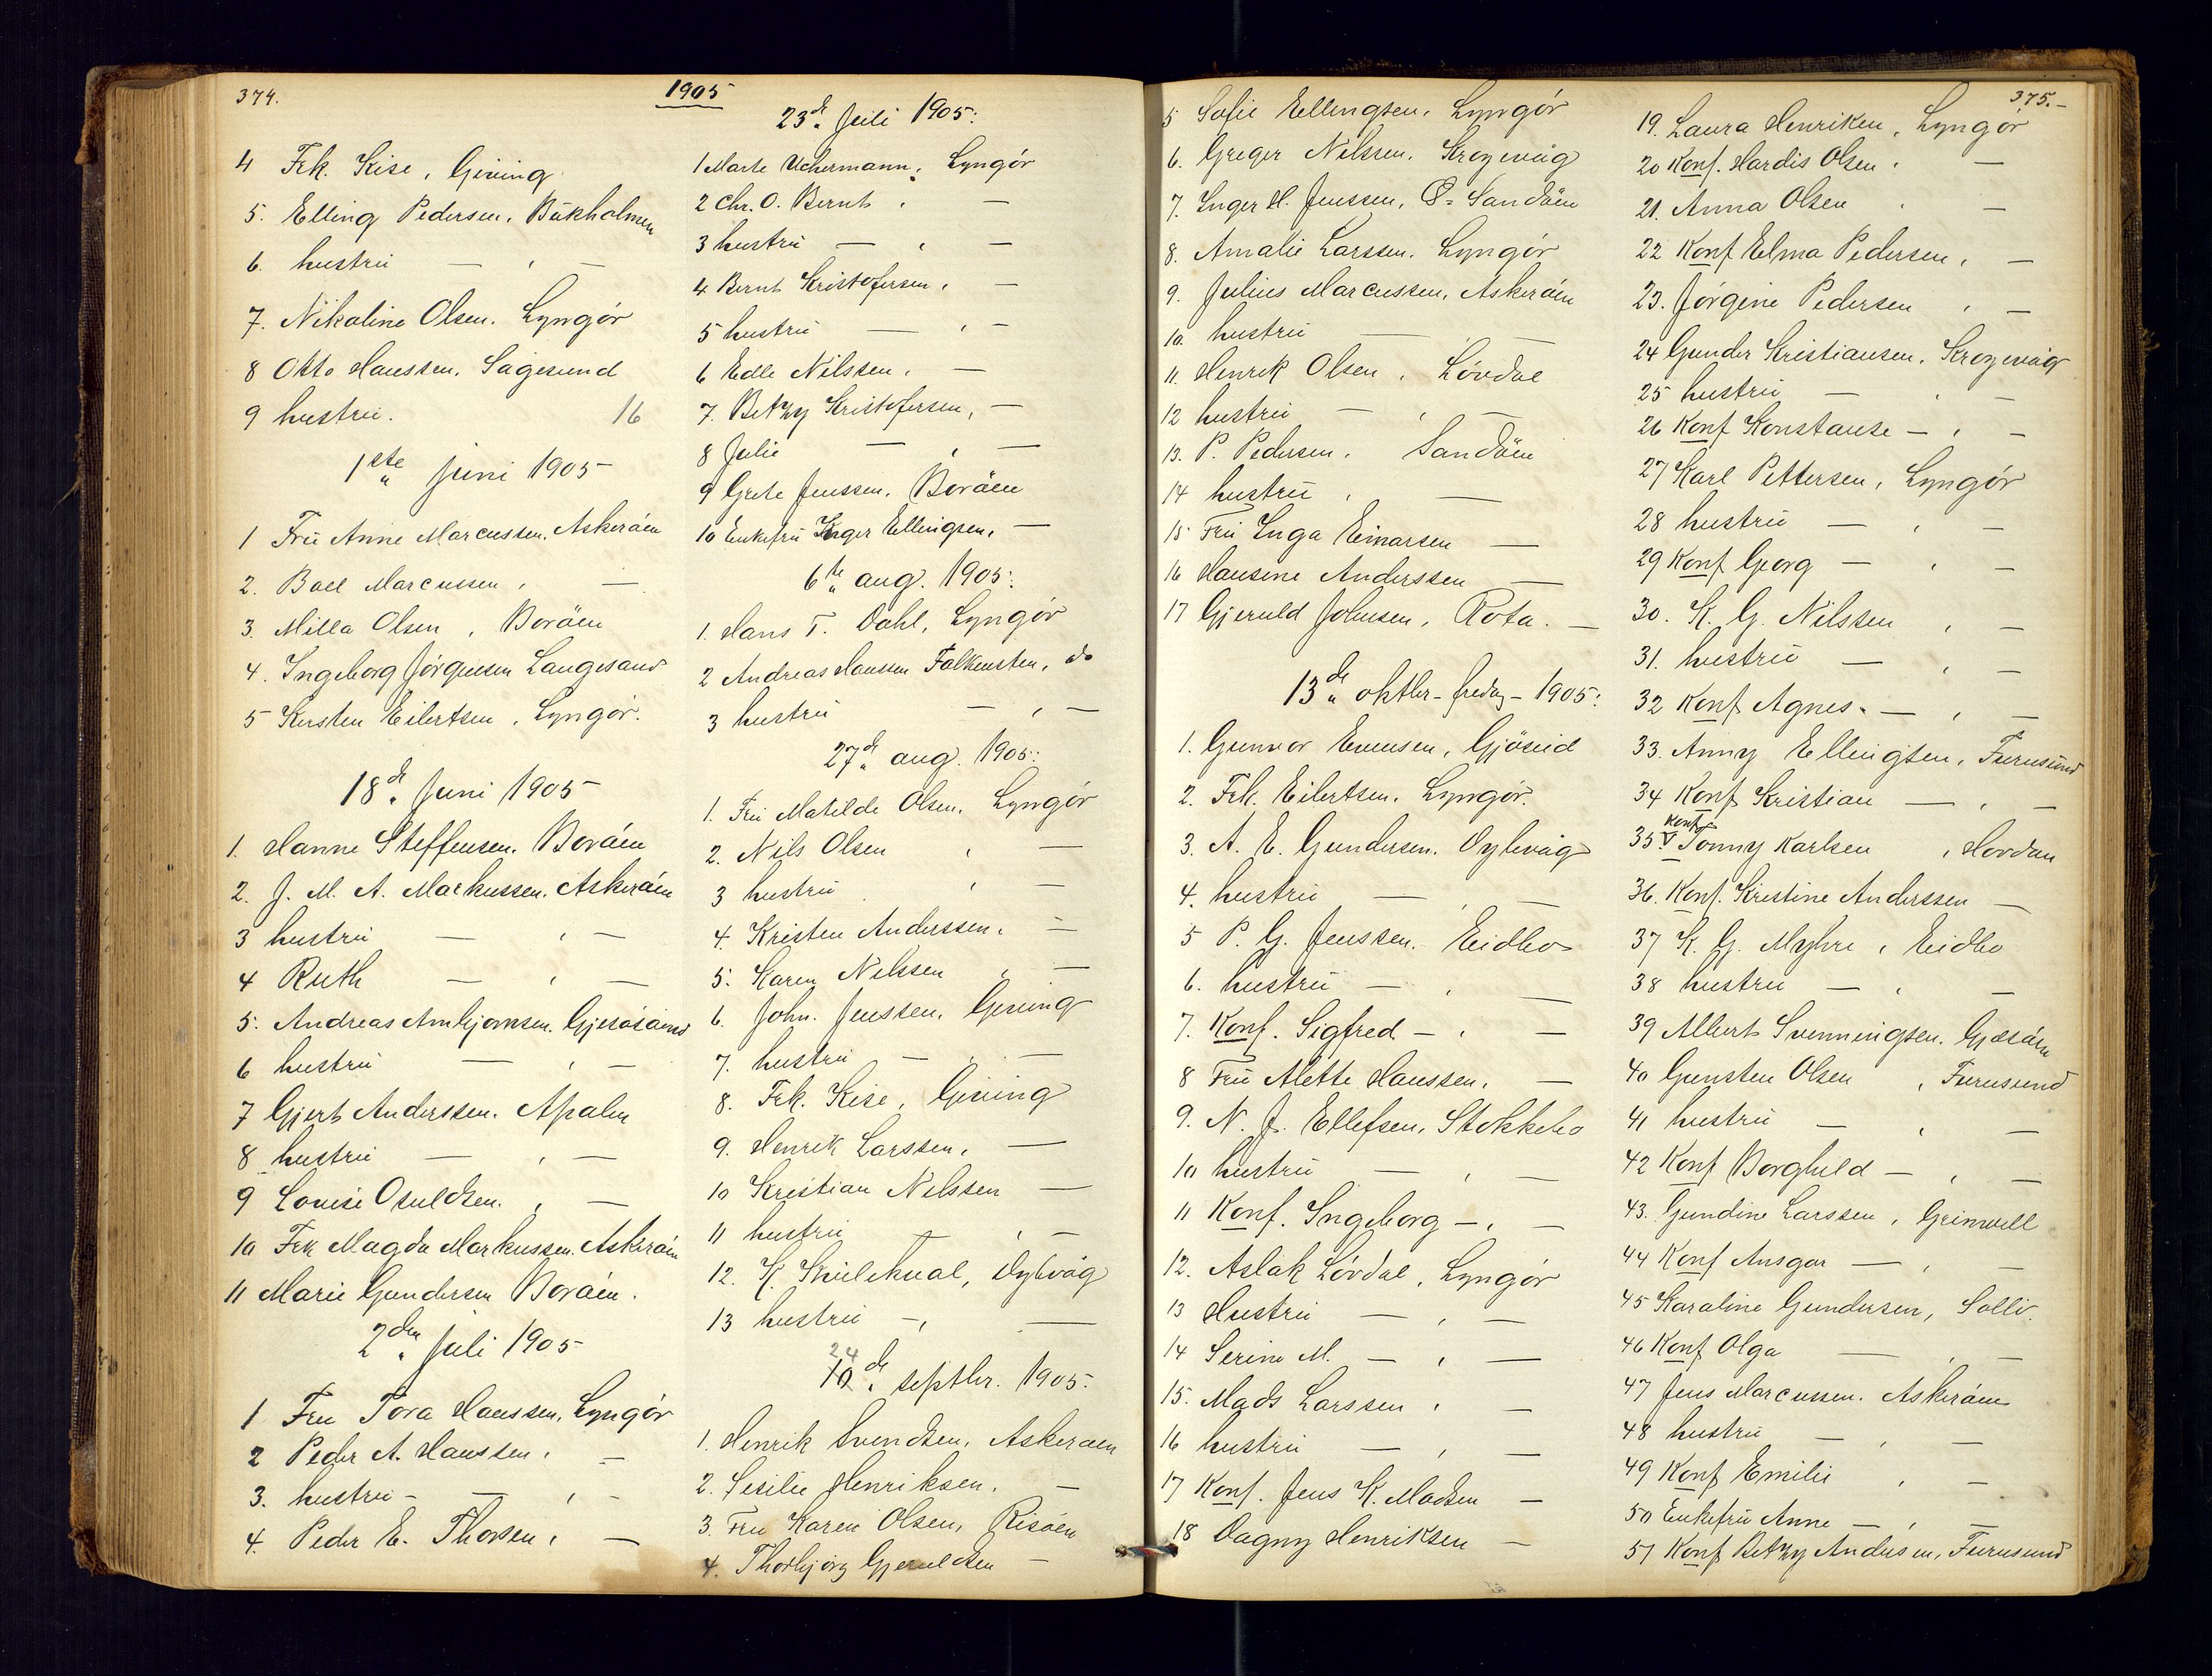 374.
1905
4 Frk. Kise, Gjeving
5. Elling Pedersen, Bukholmen
6. hustru — , —
7. Nikoline Olsen. Lyngör
8 Otto Hanssen, Sagesund
9 hustru. 16
1ste juni 1905
1 Fru Anne Marcussen, Askeröien
2. Boel Marcussen , —
3. Milla Olsen , Boröien
4. Ingeborg Jörgensen Langesand
5 Kirsten Eilertsen, Lyngör.
18de Juni 1905
1. Hanne Steffensen. Boröien
2. J. M. A. Markussen. Askeröien
3 hustru — , —
4 Ruth — , —
5. Andreas Arnbjörnsen.
6 hustru — , —
7 Gjert Anderssen. Apalen
8 hustru — , —
9 Louise Osuldsen. , —
10 Frk Magda Markussen. Askeröien
11 Marie Gundersen Boröien.
2den Juli 1905
1 Fru Tora Hanssen, Lyngör
2 Peder A. Hanssen, —
3. hustru — — , —
4. Peder E. Thorsen, —
23de Juli 1905:
1 Marte Uchermann, Lyngör
2 Chr. O. Bernt , —
3 hustru — , —
4 Bernt Kristofersen, —
5 hustru — , —
6 Edle Nilssen, —
7. Betzy Kristofersen, —
8 Julie — , —
9 Grete Jenssen. Boröien
10 Enkefru Inger Ellingsen, —
6te aug. 1905:
1. Hans T. Dahl, Lyngör
2 Andreas Hanssen Falkensten, do
3 hustru — , —
27de aug. 1905:
1. Fru Matilde Olsen. Lyngör
2. Nils Olsen , —
3 hustru , —
4. Kristen Anderssen, —
5. Karen Nilssen , —
6. John. Jenssen. Gjeving
7. hustru — , —
8. Frk. Kise, Gjeving
9. Henrik Larssen, —
10 Kristian Nilssen —
11 hustru — , —
12. K. Dybvåg
13 hustru — , —
24
10de septbr. 1905.
1. Henrik Svendsen, Askeröien
2. Sesilie Henriksen, —
3. Fru Karen Olsen, Risöen
4. Thorbjörg Gjeruldsen —
5 Sofie Ellingsen, Lyngör
6. Greger Nilssen. Krogevåg
7. Inger H. Jenssen, Ö= Sandöien
8. Amalie Larssen. Lyngör
9. Julius Marcussen, Askeröien
10. hustru — , —
11. Henrik Olsen , Lövdal
12 hustru — , —
13. P. Pedersen. Sandöien
14 hustru , —
15 Fru Inga Einarsen —
16 Hansine Anderssen —
17 Gjeruld Johnsen, Rota. —
13de oktbr - fredag - 1905:
1. Gunvor Evensen, Gjöseid
2. Frk. Eilertsen. Lyngör.
3. A. E. Gundersen. Dybvåg
4. hustru — , —
5 P. G. Jenssen. Eidbo
6. hustru — , —
7. Konf. Sigfred — , —
8 Fru Alette Hanssen, —
9. N. J. Ellefsen, Stokkebo
10 hustru — , —
11 Konf. Ingeborg — , —
12. Aslak Lövdal, Lyngör
13 Hustru — , —
14 Serine M. — , —
15. Mads Larssen , —
16 hustru — , —
17 Konf. Jens K. Madsen —
18 Dagny Henriksen —
375.—
19. Laura Henriken, Lyngör
20 Konf. Hardis Olsen , —
21. Anna Olsen , —
22 Konf Elma Pedersen, —
23. Jörgine Pedersen , —
24 Gunder Kristiansen, Krogevåg
25 hustru — , —
26 Konf Konstanse — , —
27 Karl Pettersen, Lyngör
28 hustru — , —
29 Konf Georg — , —
30. K. G. Nilssen , —
31. hustru — , —
32 Konf Agnes. — , —
33. Anny Ellingsen, Furusund
34 Konf Kristian — , —
35. Konf Tonny Karlsen , Hovdan
36. Konf. Kristine Anderssen —
37 K. G. Myhre , Eidbo
38 hustru — , —
39 Albert Svenningsen. Gjæsöien
40 Gunsten Olsen , Furusund
41 hustru — , —
42 Konf Borghild — , —
43. Gundine Larssen,
44 Konf Ansgar — , —
45 Karaline Gundersen, Solli.
46 Konf Olga — , —
47 Jens Marcussen. Askeröien
48 hustru — , —
49 Konf Emilie , —
50 Enkefru Anne — , —
51 Konf Betzy Andersen, Furusund